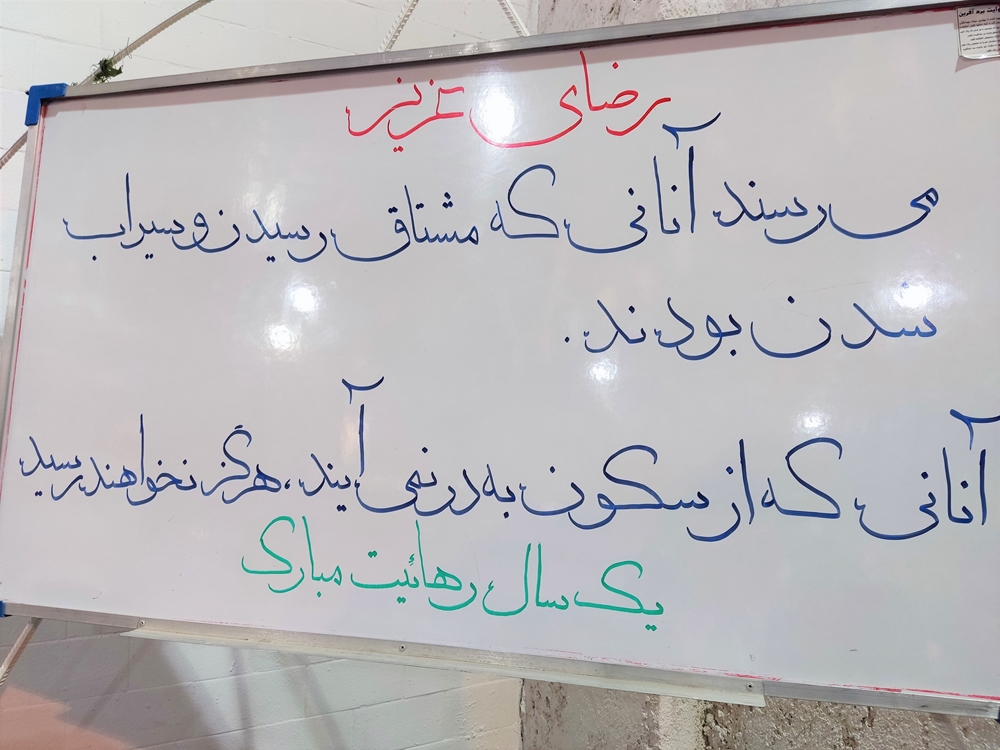 رضای عزیز
می رسند آنانی که مشتاق رسیدن و سیراب
شدن بودند.
آنانی که از سکون به در نمی آیند، هرگز نخواهند رسید
یک سال رهائیت مبارک